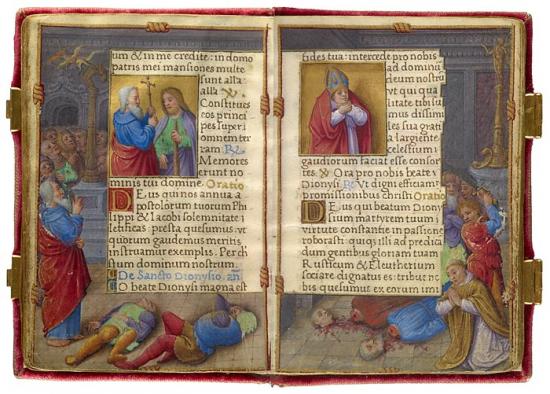 um & in me credite: in domo
patris mei mansiones multe
sunt alla:
alla ℣.
Constitues
eos princi-
pes super
omnem ter
ram. ℟.
Memores
erunt no
minis tui domine. Oratio
Deus qui nos annua a
postolorum tuorum Phi
lippi & Iacobi solemnitate l
etificas: presta quesumus: vt
quorum gaudemus meritis
instruamur exemplis. Per ch
stum dominum nostrum.
De Sancto Dionysio. añ
O beate Dionysi magna est
fides tua: intercede pro nobis
ad dominu
deum nostru
vt qui qua
litate tibi su
mus dissimi
les sua grati
a largiente
celestium
gaudiorum faciat esse consor
tes. ℣. Ora pro nobis beate
Dionysi. ℟. Vt digni efficiam
promissionibus christi. Oratio
Deus qui beatum Diony
sium martyrem tuum
virtute constantie in passione
roborasti: quiqz illi ad predica
dum gentibus gloriam tuam
Rusticum & Eleutherium
sociare dignatus es: tribue no
bis quesumus ex eorum imi